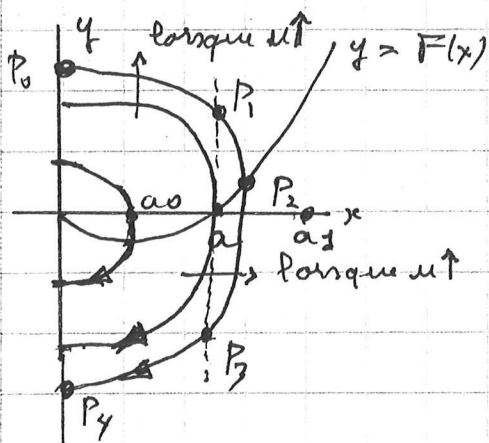 y
lorsque μ↑
y = F(x)
P₀
P₁
a₀
P₂
a
a₁
x
lorsque μ↑
P₃
P₄